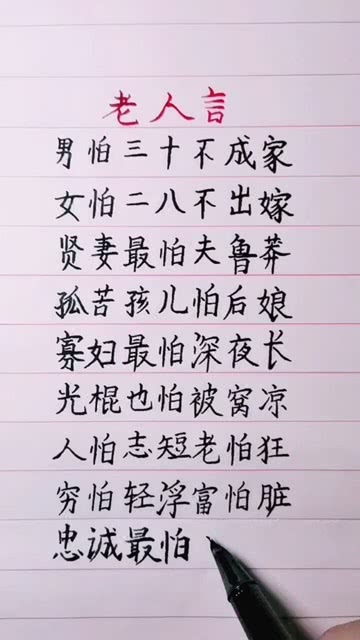 老人言
男怕三十不成家
女怕二八不出嫁
贤妻最怕夫鲁莽
孤苦孩儿怕后娘
寡妇最怕深夜长
光棍也怕被窝凉
人怕志短老怕狂
穷怕轻浮富怕脏
忠诚最怕